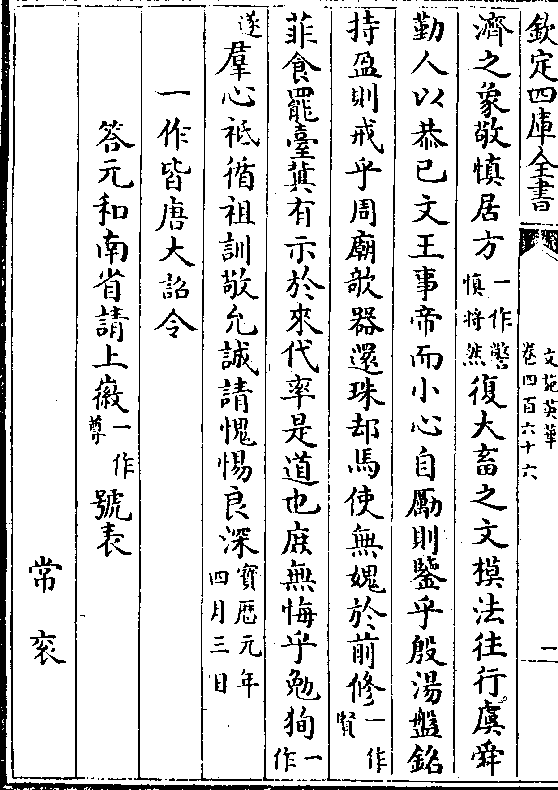 欽定四庫全書
文苑英華
卷四百六十六
二
濟之象敬慎居方一作警慎將然復大畜之文模法往行虞舜
勤人以恭已文王事帝而小心自勵則鑒乎殷湯盤銘
持盈則戒乎周廟欹器還珠却馬使無媿於前修一作賢
菲食罷臺冀有示於來代率是道也庶無悔乎勉狥一作
遂羣心祗循祖訓敬允誠請愧惕良深寶厯元年四月三日
一作皆唐大詔令
答元和南省請上徽一作尊號表
常衮